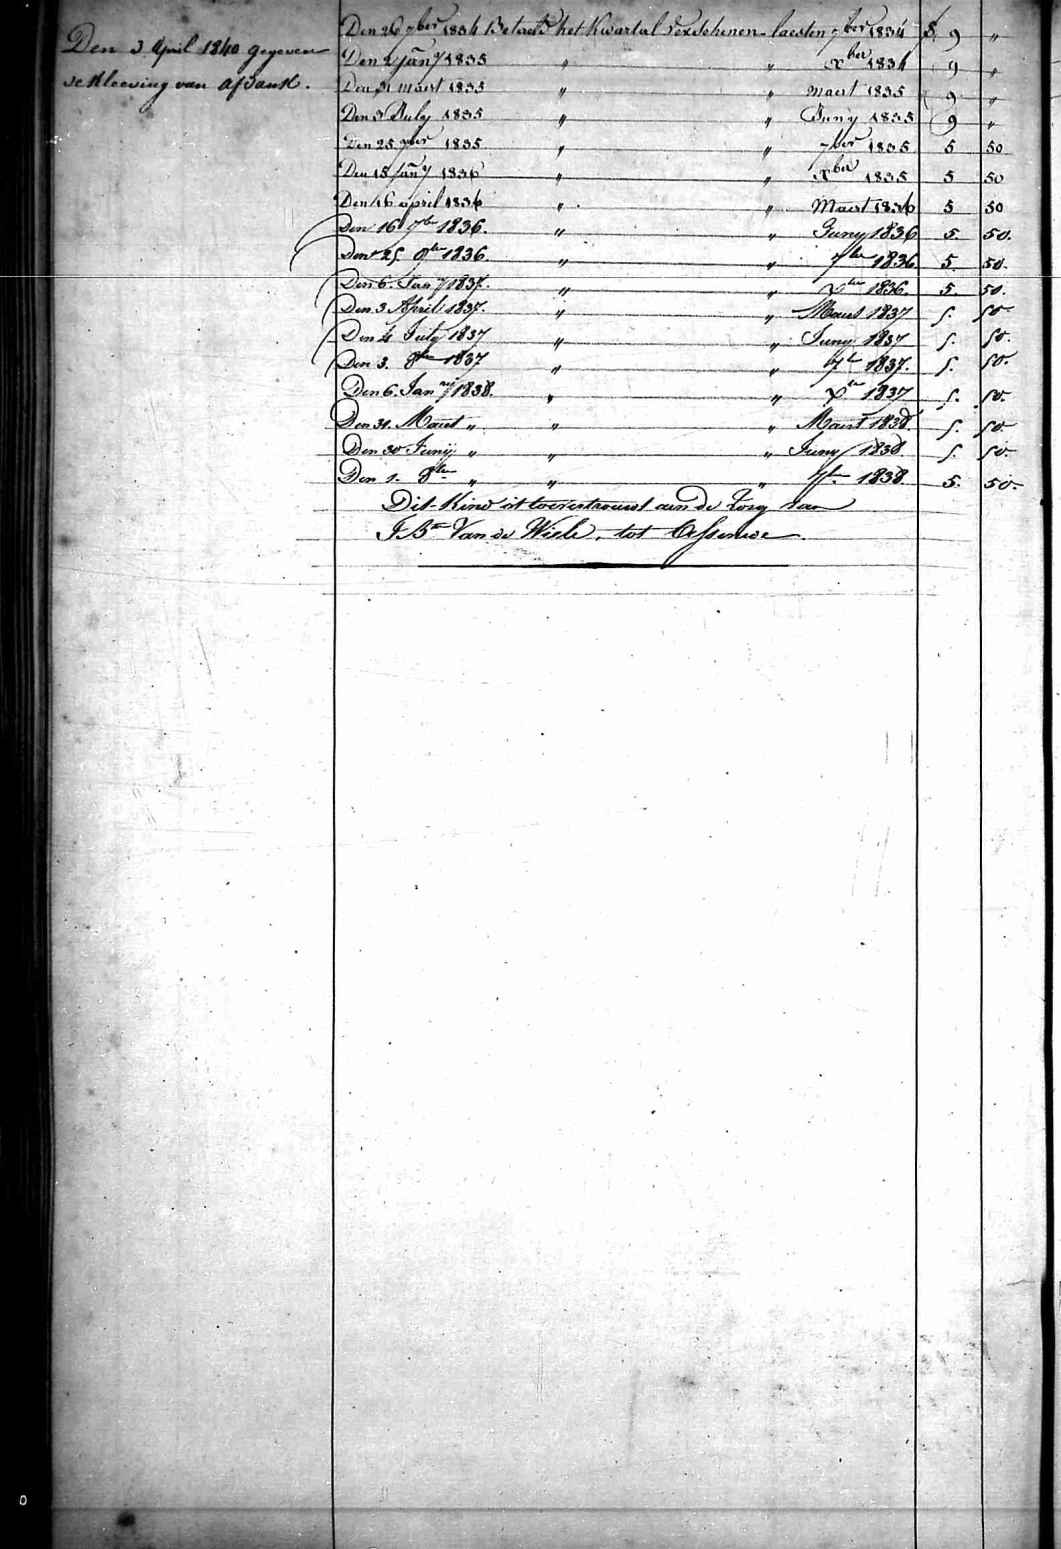 Den 3 April 1840 gegeven
de kleeving van afdank.
Den 26 7ber 1834 Betaeld het Kwartal verschenen laesten 7ber 1834 f. 9 "
Den 2 Jany 1835 " " Xber 1834 9 "
Den 31 maert 1835 " " maert 1835 9 "
Den 3 July 1835 " " Juny 1835 9 "
Den 25 7ber 1835 " " 7ber 1835 5 50
Den 15 Jany 1836 " " Xber 1835 5 50
Den 16 april 1836 " " Maert 1836 5 50
Den 16 7ber 1836. " " Juny 1836 5. 50.
Den 25 9ber 1836. " " 7ber 1836 5. 50.
Den 6. Jany 1837. " " Xber 1836. 5. 50.
Den 3 April 1837. " " Maert 1837 5. 50.
Den 4 July 1837 " " Juny 1837 5. 50.
Den 3. 8ber 1837 " " 7ber 1837. 5. 50.
Den 6. Jany 1838. " " Xber 1837 5. 50.
Den 31. Maert " " " Maert 1838. 5. 50
Den 30 Junij " " " Juny 1838 5. 50
Den 1. 8ber " " " 7ber 1838. 5. 50.
Dit Kind is toevertrouwd aen de zorg van
J Bte Van de Wiele, tot